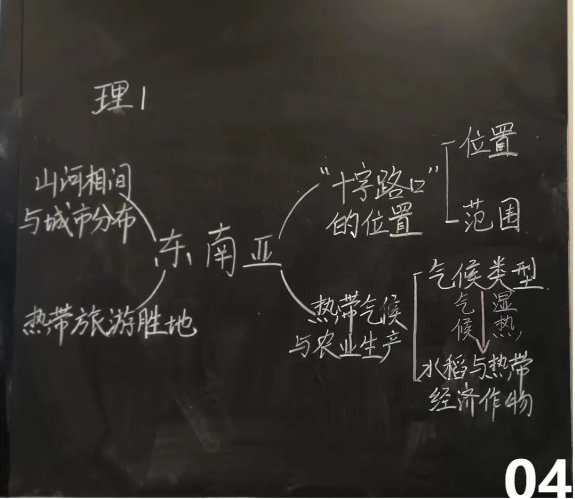 理1
山河相间
与城市分布
热带旅游胜地
东南亚
"十字路口"
的位置
位置
范围
热带气候
与农业生产
气候类型
气候
湿热
水稻与热带
经济作物
04